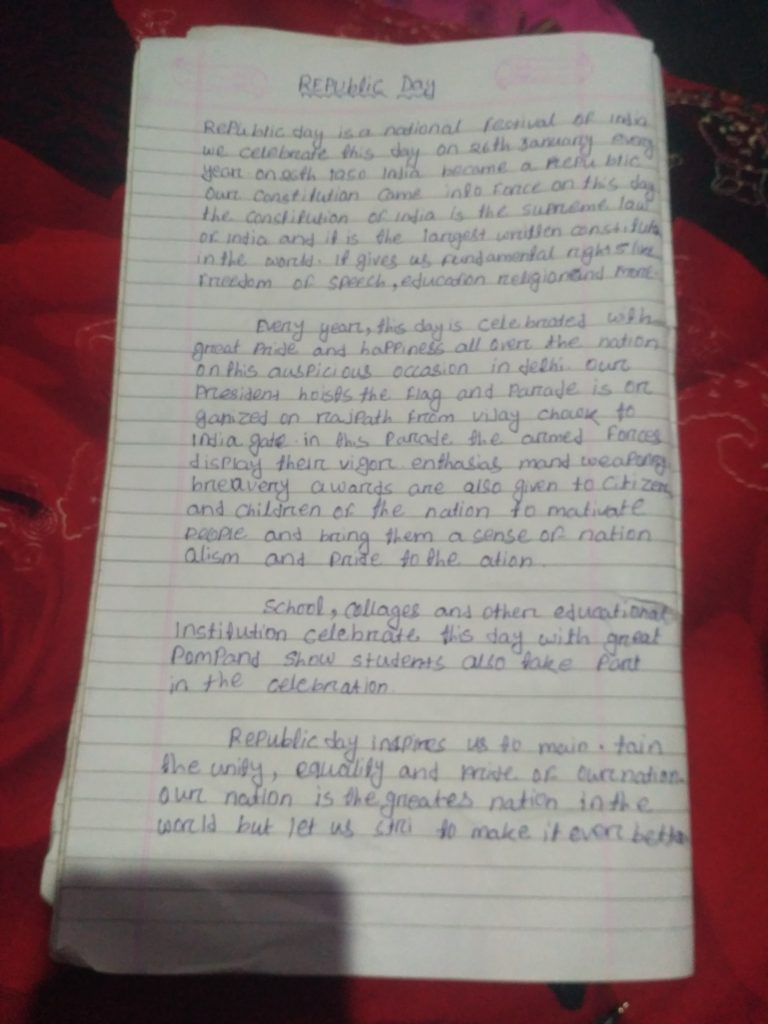 Republic Day
Republic day is a national festival of india
we celebrate this day on 26th January every
year on 26th 1950 India became a Republic
Our constitution came into force on this day
the constitution of india is the supreme law
of india and it is the largest written constitutn
in the world. it gives us fundamental rights like
freedom of speech, education religion and more.
Every year, this day is celebrated with
great Pride and happiness all over the nation
on this auspicious occasion in delhi. our
President hoists the flag and Parade is or
ganized on rajpath from vijay chowk to
India gate. in this Parade the armed Forces
display their vigor enthasias mand weaponry
breavery awards are also given to citizen
and children of the nation to mativate
people and bring them a sense of nation
alism and Pride to the ation.
School, collages and other educational
Institution celebrate this day with great
PomPand show students also take Part
in the celebration.
Republic day inspires us to main. tain
the unity, equality and pride of our nation.
our nation is the greates nation in the
world but let us stri to make it even better